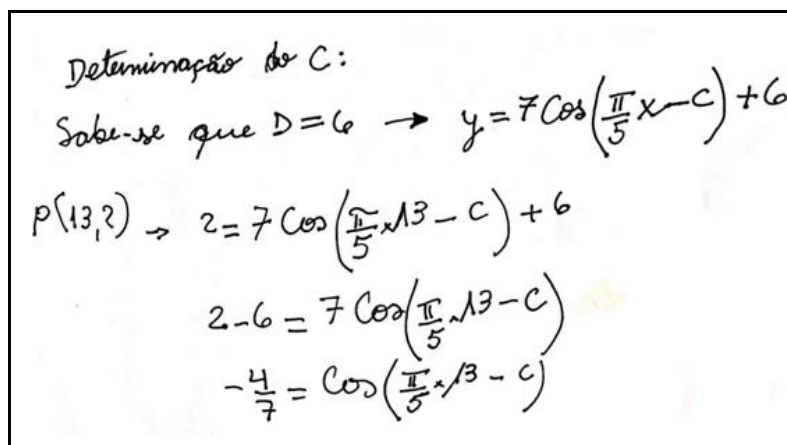 Determinação do C:
Sabe-se que D=6 → y = 7 Cos(π/5 x - C) + 6
P(13,2) → 2 = 7 Cos(π/5 × 13 - C) + 6
2 - 6 = 7 Cos(π/5 × 13 - C)
-4/7 = Cos(π/5 × 13 - C)